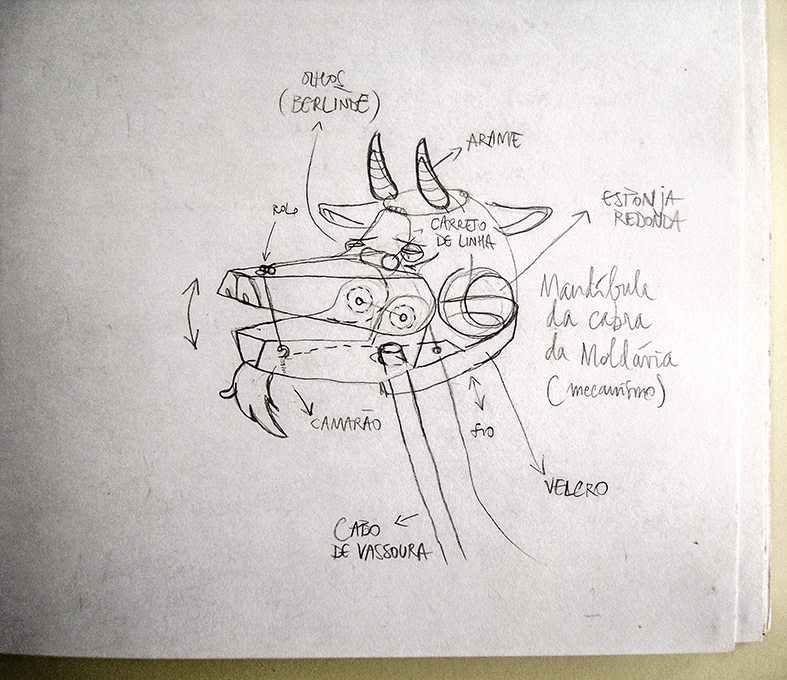 OLHOS
(BERLINDE)
ARAME
ROLO
CARRETO
DE LINHA
ESPONJA
REDONDA
Mandíbula
da cabra
da Moldávia
(mecanismo)
CAMARÃO
fio
VELCRO
CABO
DE VASSOURA